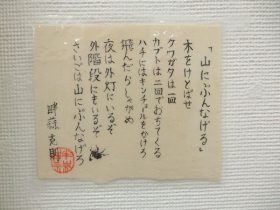 「山にぶんなげる」
木をけとばせ
クワガタは一回
カブトは二回でおちてくる
ハチにはキンチョールをかけろ
飛んだらしゃがめ
夜は外灯にいるぞ
外階段にもいるぞ
さいごは山にぶんなげろ